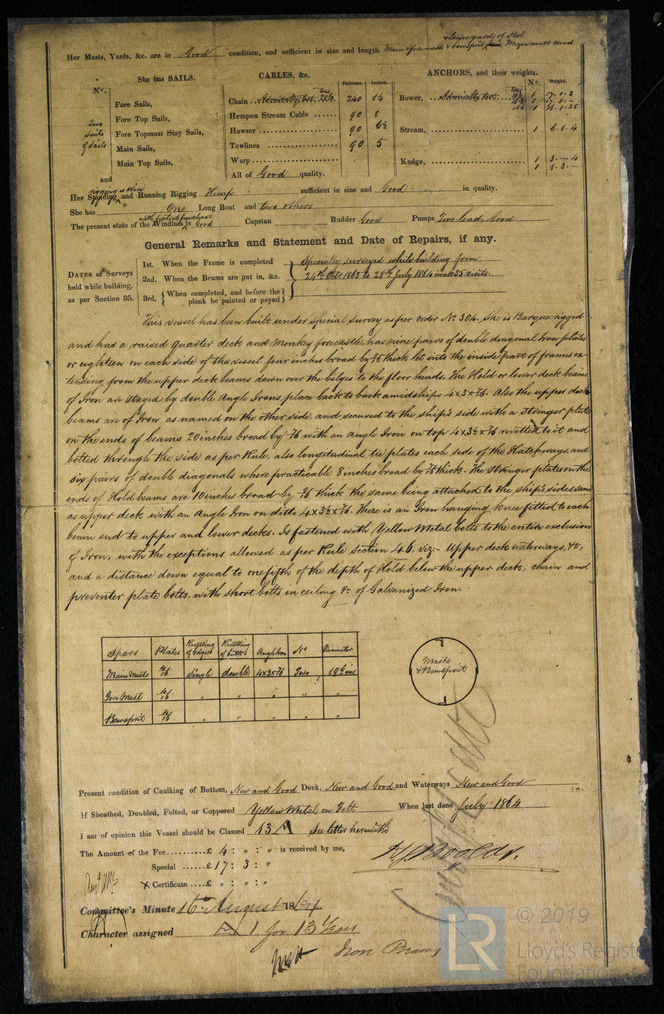 & lower yards of Steel
Her Masts, Yards, &c. are in Good condition, and sufficient in size and length. Main & fore masts & bowsprit Mizen mast wood
She has SAILS. CABLES, &c. Fathoms. Inches. ANCHORS, and their weights. No. Weight.
No.
Fore Sails, Chain 240 1¼ Bower, 1
Fore Top Sails, Hempen Stream Cable 90 8
Two Suits of Sails
Fore Topmast Stay Sails, Hawser 90 6½ Stream, 1 6.1.4
Main Sails, Towlines 90 5
Main Top Sails, Warp Kedge, 1 3.-.4
All of Good quality. 1 1.3.-
and
Her Standing and Running Rigging Hemp sufficient in size and Good in quality.
She has One Long Boat and two others
The present state of the Windlass is Good Capstan Rudder Good Pumps Two lead, Good
with patent purchase
General Remarks and Statement and Date of Repairs, if any.
DATES of Surveys held while building, as per Section 35.
1st. When the Frame is completed
2nd. When the Beams are put in, &c.
3rd. When completed, and before the plank be painted or payed
Specially surveyed while building from
24th Octr 1863 to 28th July 1864 made 35 visits
This vessel has been built under special survey as per order No. 304. She is Barque rigged
and has a raised quarter deck and Monkey forecastle has nine pairs of double diagonal Iron plates
or eighteen on each side of the vessel four inches broad by thick let into the inside part of frames ex-
tending from the upper deck beams down over the bilges to the floor heads. The Hold or lower deck beams
of Iron are stayed by double Angle Irons place back to back amidships 4x3x Also the upper deck
beams are of Iron as named on the other side, and secured to the ship's side with a stringer plate
on the ends of beams 20 inches broad by with an Angle Iron on top rivetted to it and
bolted through the side as per Rule, also longitudinal tie plates each side of the Hatchways, and
six pairs of double diagonals where practicable 8 inches broad by thick. The Stringer plates on the
ends of Hold beams are 10 inches broad by thick the same being attached to the ship's sides same
as upper deck with an Angle Iron on ditto There is an Iron hanging knee fitted to each
beam end to upper and lower decks. Is fastened with Yellow Metal bolts to the entire exclusion
of Iron, with the exceptions allowed as per Rule Section 46, viz:- Upper deck waterways, &c,
and a distance down equal to one fifth of the depth of Hold below the upper deck, chain and
preventer plate bolts, with short bolts in ceiling &c of Galvanized Iron.
Spars Plates Rivetting of Edges Rivetting of butts Angle Iron No Diameter
Main Masts single double Two
Fore Mast " " " " "
Bowsprit " " " " "
Masts & Bowsprit
Present condition of Caulking of Bottom, New and Good Deck, New and Good and Waterways New and Good
If Sheathed, Doubled, Felted, or Coppered Yellow Metal on Felt When last done July 1864
I am of opinion this Vessel should be Classed 13 A See letter herewith
The Amount of the Fee £ 4 : " : " is received by me,
Special £ 17 : 3 : "
Certificate £ " : " : "
Committee's Minute 16th August 1864
Character assigned A 1 for 13 Years
Iron Beams
LR © 2019
Lloyd's Register
Foundation